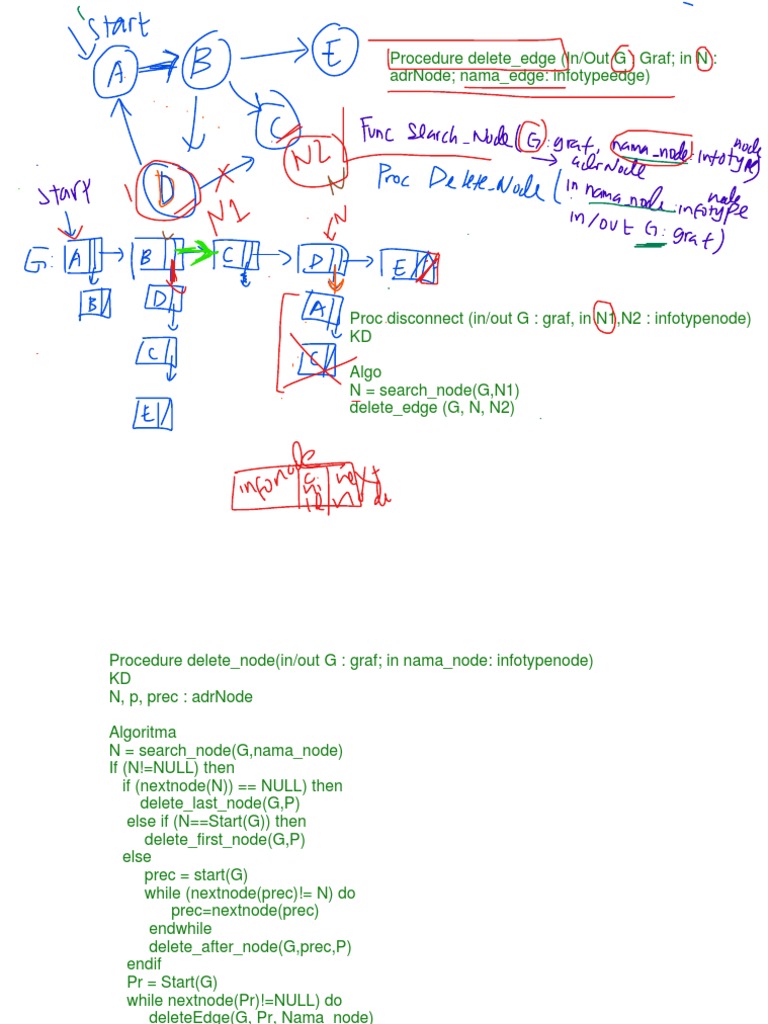 Start
A
B
E
C
D
N2
Procedure delete_edge (In/Out G : Graf; in N :
adrNode; nama_edge: infotypeedge)
Func Search_Node(G: graf, nama_node: infotypenode)
→ adrNode
Proc Delete_Node (
in nama_node: infotypenode
in/out G: graf)
Start
N1
N
N
G: A B C D E
B D A
C C
E
Proc disconnect (in/out G : graf, in N1,N2 : infotypenode)
KD
Algo
N = search_node(G,N1)
delete_edge (G, N, N2)
infonode
next
Procedure delete_node(in/out G : graf; in nama_node: infotypenode)
KD
N, p, prec : adrNode
Algoritma
N = search_node(G,nama_node)
If (N!=NULL) then
if (nextnode(N)) == NULL) then
delete_last_node(G,P)
else if (N==Start(G)) then
delete_first_node(G,P)
else
prec = start(G)
while (nextnode(prec)!= N) do
prec=nextnode(prec)
endwhile
delete_after_node(G,prec,P)
endif
Pr = Start(G)
while nextnode(Pr)!=NULL) do
deleteEdge(G, Pr, Nama_node)